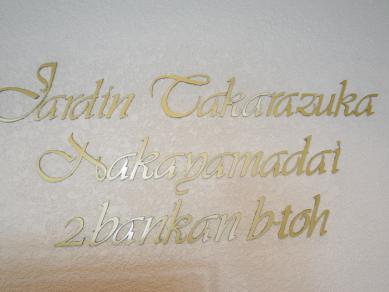 Jardin Takarazuka
Nakayamadai
2 bankan b-toh